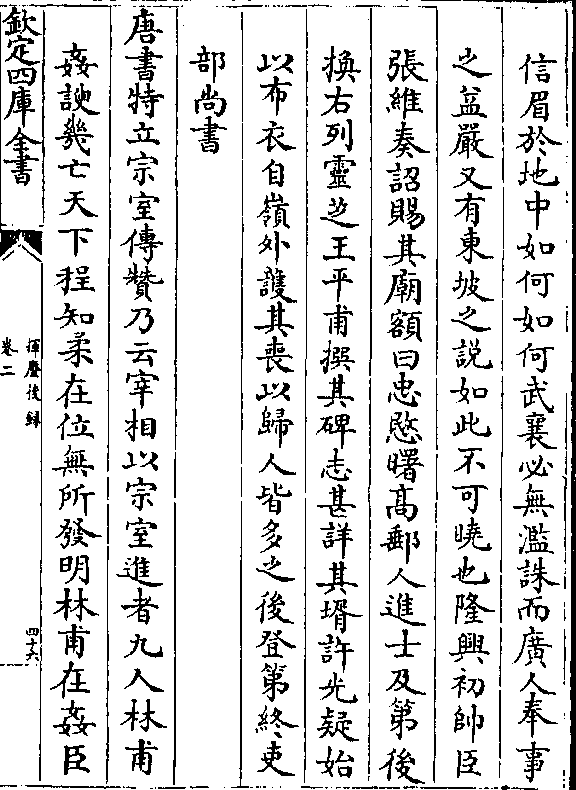 信眉於地中如何如何武襄必無濫誅而廣人奉事
之益嚴又有東坡之説如此不可曉也隆興初帥臣
張維奏詔賜其廟額曰忠愍曙髙郵人進士及第後
換右列靈芝王平甫撰其碑志甚詳其壻許光疑始
以布衣自嶺外護其喪以歸人皆多之後登第終吏
部尚書
唐書特立宗室傳贊乃云宰相以宗室進者九人林甫
姦諛幾亡天下程知柔在位無所發明林甫在姦臣
欽定四庫全書
揮麈後録
卷二
四十六